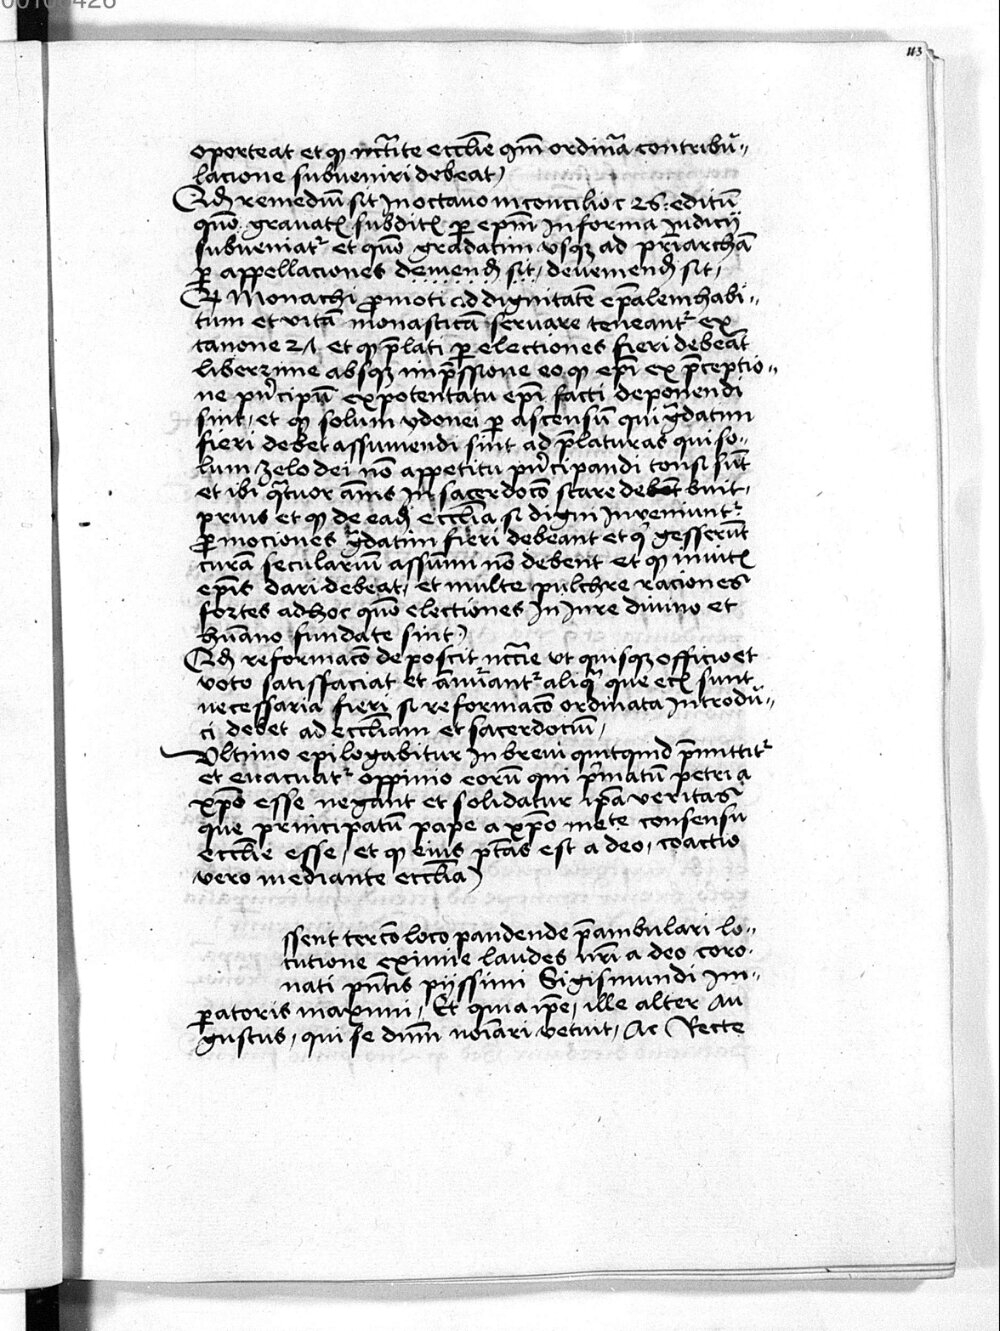 00100426
113
oporteat et qͦ nc̄tite ecclīe qm̄ ordinīa contribū„
lacione subueniri debeat
Qđ remediū sit in octauo in concilio c 26. editū
quō grauatꝭ subditꝭ ꝑ epm̄ in forma Iudicij
subueniatʳ et quō gradatim usqꝫ ad p̄riarchā
ꝑ appellaciones deueniend̄ sit / deueniend̄ sit,
Qđ Monachi ꝓmoti ad dignitatē ep̄alem habi„
tum et vitā monasticā seruare teneantʳ ex
canone 27 et qͦ p̄lati ꝑ electiones fieri debeāt
liberrime absqꝫ imp̄ssione eo qͦ ep̄i ex p̄ceptio„
ne pⁿcipū ex potentatu ep̄i facti deponendi
sint, et qͦ solum ydonei ꝑ ascensū qui gͣdatim
fieri debet assumendi sint ad p̄laturas qui so„
lum zelo dei nō appetitu pⁿcipandi tonsi sūt
et ibi qͣtuor annis in sacerdoco stare debēt
prius et qͦ de ead̄ ecclīa si digni Inueniuntʳ
ꝓmociones gͣdatim fieri debeant et qͥ gesserūt
curā seculariū assumi nō debent et qͦ inuitꝭ
ep̄is dari debeat, et multe pulchre raciones
fortes ad hoc quō electiones in Iure diuino et
hūano fundate sint
Qđ reformacō deposcit nc̄rie ut quisqꝫ officio et
voto satisfaciat et aliqͣ que ecꝭ sunt
necessaria fieri si reformacō ordinata introdū„
ci debet ad eccliam et sacerdotiū,
Vltimo epilogabitur in breui quitquid p̄mittitʳ
et euacuatʳ oppinio eorū qui pⁱmatū petri a
xp̄o esse negant et solidatur ip̄a veritas
que principatū pape a xp̄o mete consensu
ecclīe esse, et qͦ eius p̄tas est a deo, coactio
vero mediante ecclīa
ssent tercō loco pandende p̄ambulari lo„
cutione eximie laudes nr̄i a deo coro„
nati pn̄tis pijssimi Sigismundi Im„
ꝑatoris maximi, Et quia ip̄e, ille alter Au
gustus, qui se dnm̄ noīari vetuit, Ac Recte